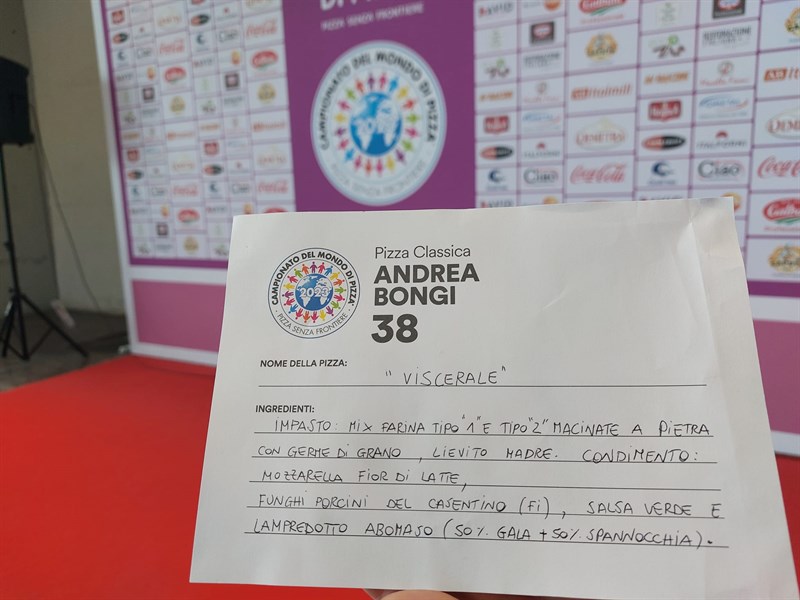 DI
PIZZA SENZA FRONTIERE
CAMPIONATO DEL MONDO DI PIZZA
PIZZA SENZA FRONTIERE
Italmill
DEMETRA
Coca-Cola
Ciao
Coca-Cola
Galbani
CAMPIONATO DEL MONDO DI PIZZA
2023
PIZZA SENZA FRONTIERE
Pizza Classica
ANDREA
BONGI
38
NOME DELLA PIZZA:
"VISCERALE"
INGREDIENTI:
IMPASTO: MIX FARINA TIPO "1" E TIPO "2" MACINATE A PIETRA
CON GERME DI GRANO, LIEVITO MADRE. CONDIMENTO:
MOZZARELLA FIOR DI LATTE,
FUNGHI PORCINI DEL CASENTINO (FI), SALSA VERDE E
LAMPREDOTTO ABOMASO (50% GALA + 50% SPANNOCCHIA).